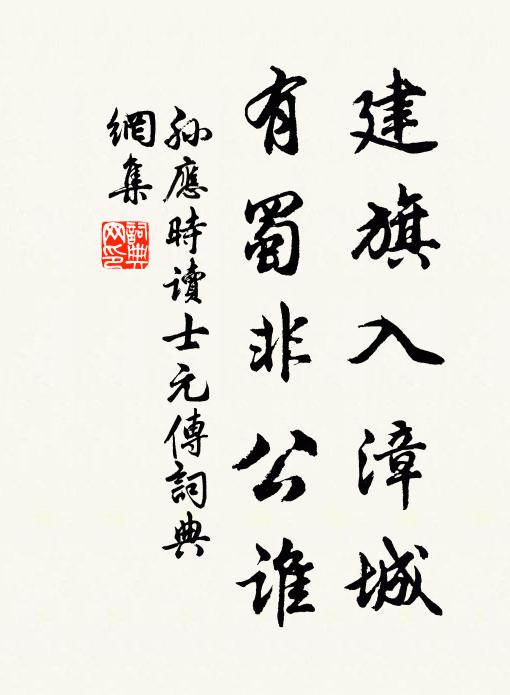 建旗入漳城
有蜀非公誰
孫應時讀士元傳詞典
網集
詞典
网印